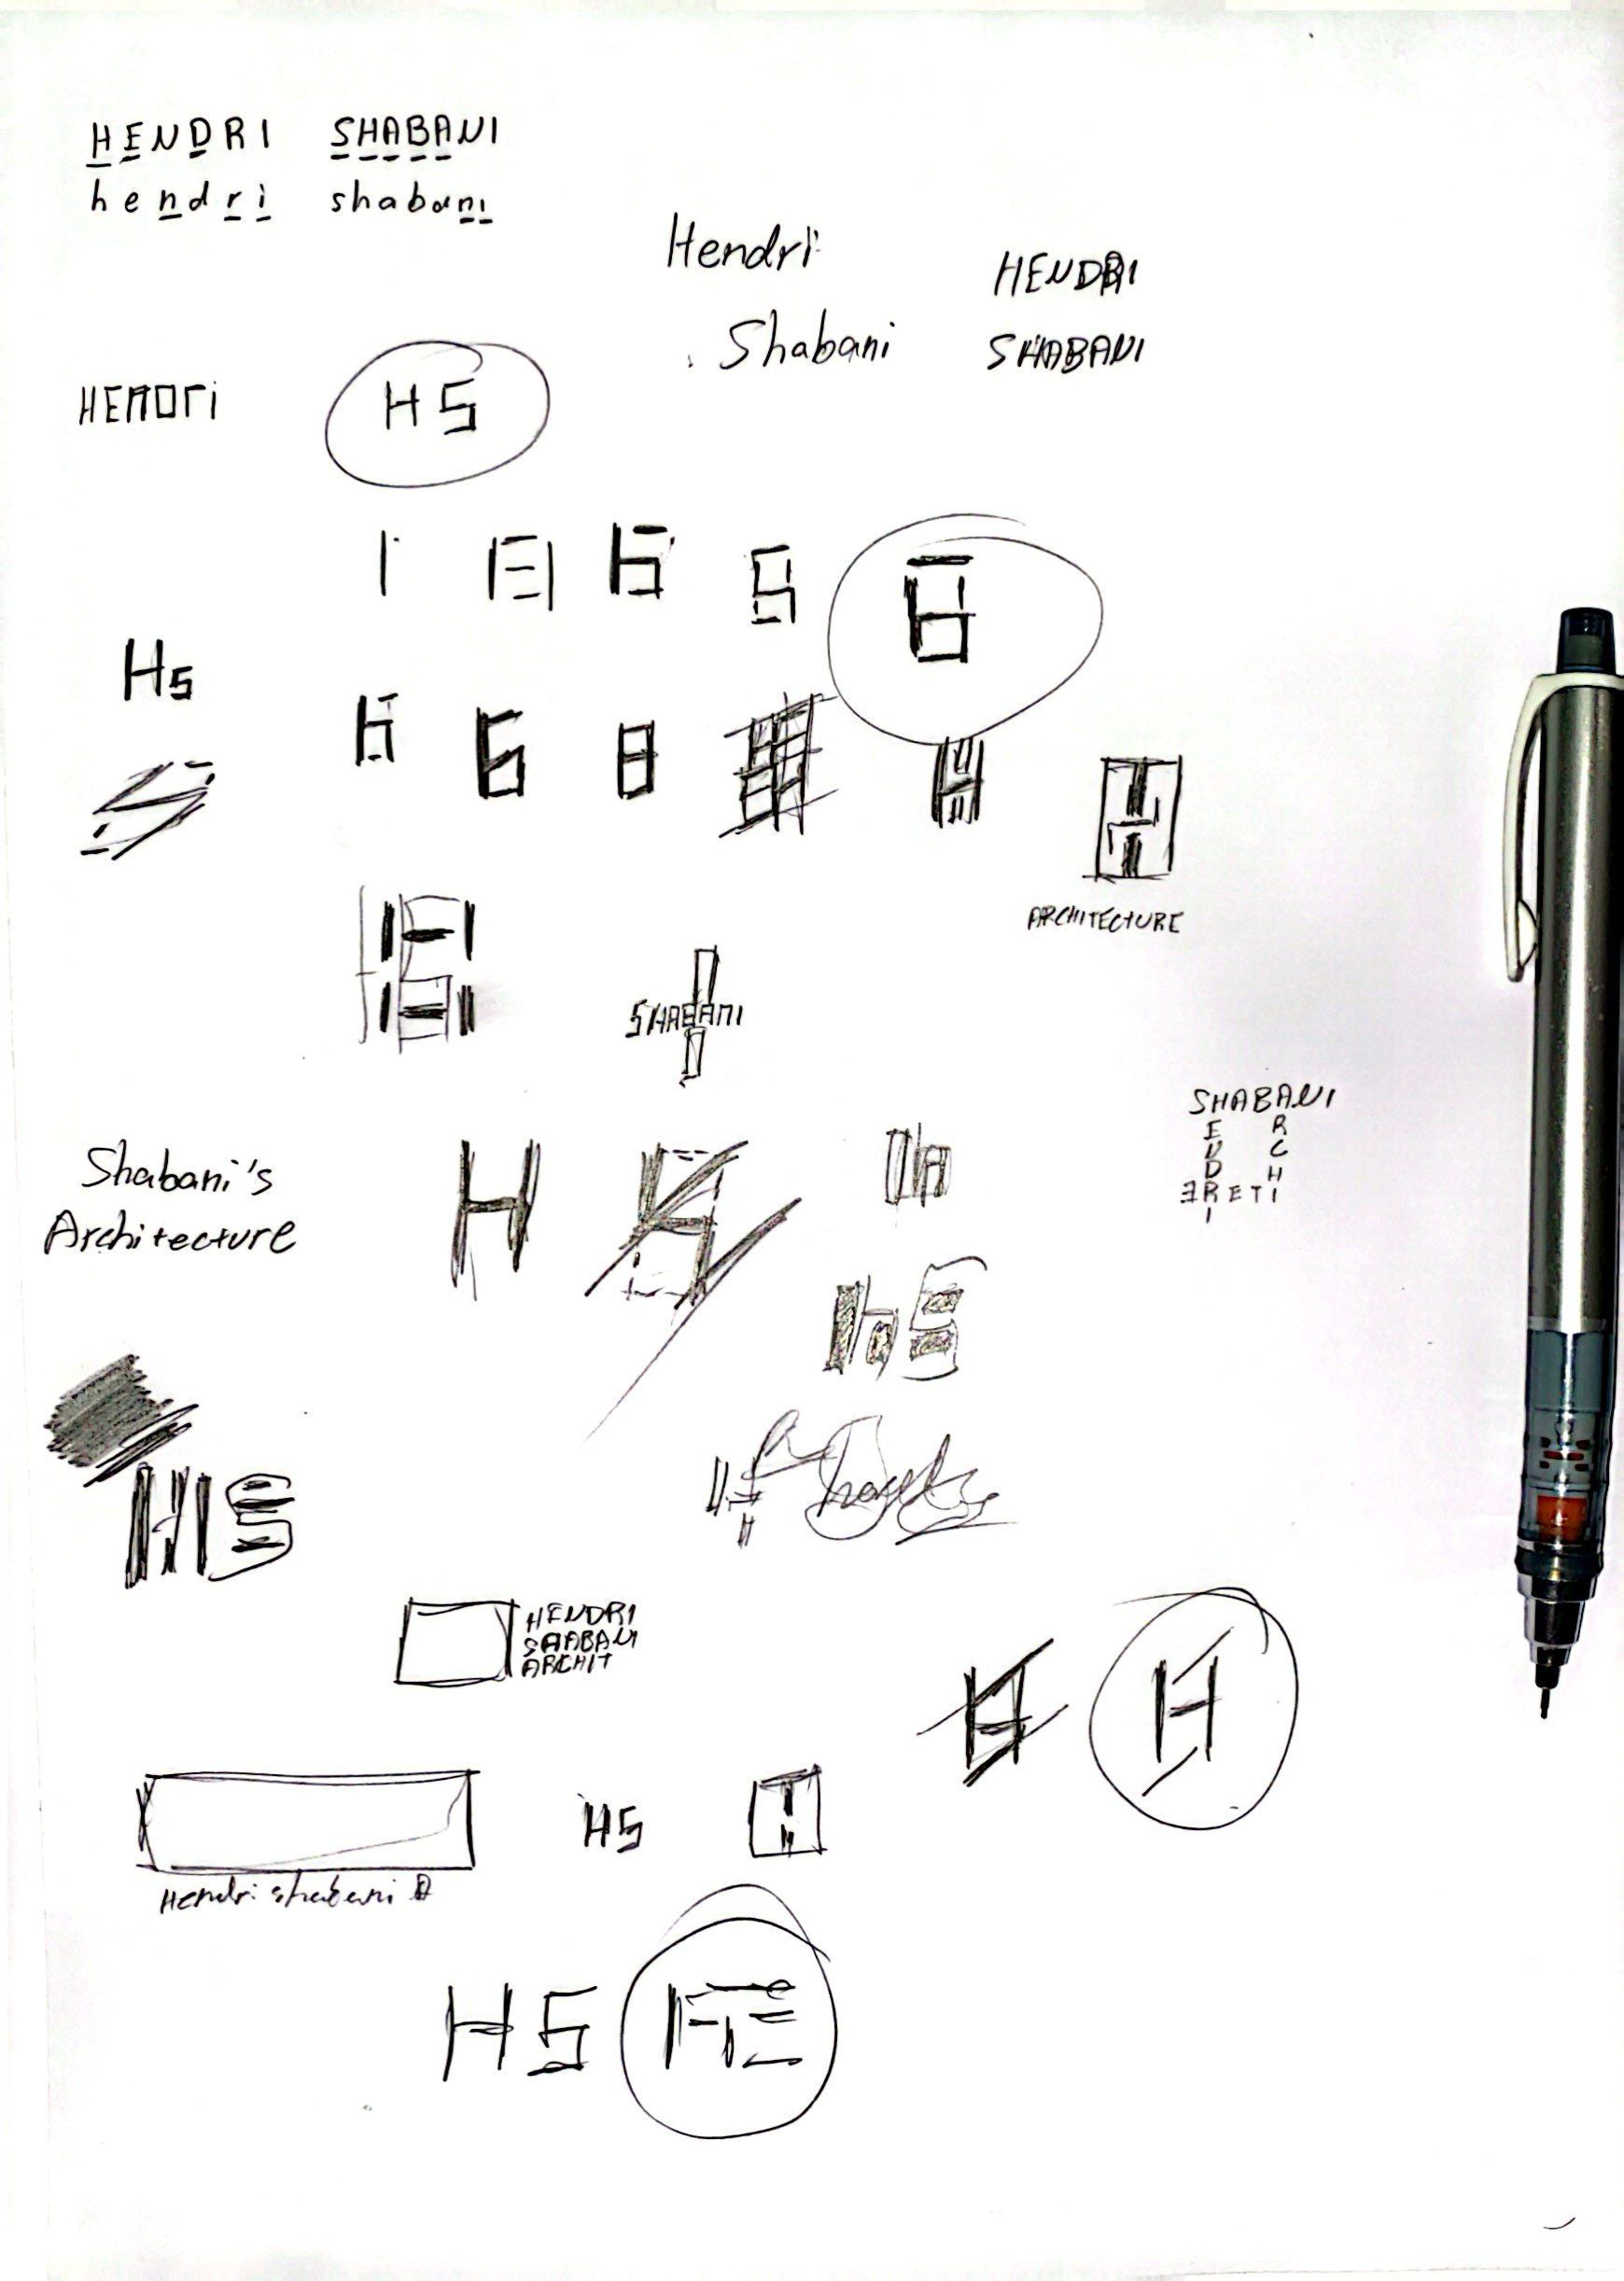 HENDRI SHABANI
hendri shabani
Hendri
Shabani
HENDRI
SHABANI
HENDri
HS
HS
ARCHITECTURE
SHABANI
SHABANI
E R
N C
D H
R E T I
I
Shabani's
Architecture
H
hS
HS
HENDRI
SHABANI
ARCHIT
H
HS
Hendri shabani
HS